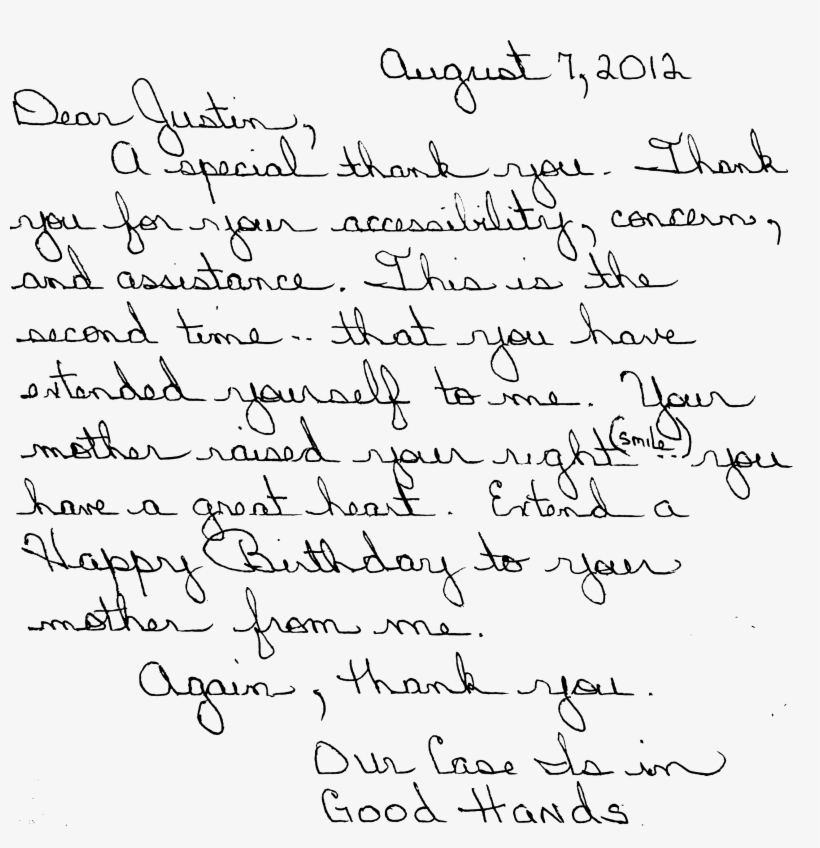 August 7, 2012
Dear Justin,
A special thank you. Thank
you for your accessibility, concern,
and assistance. This is the
second time.. that you have
extended yourself to me. Your
mother raised your right (smile..) you
have a great heart. Extend a
Happy Birthday to your
mother from me.
Again, thank you.
Our Case Is in
Good Hands